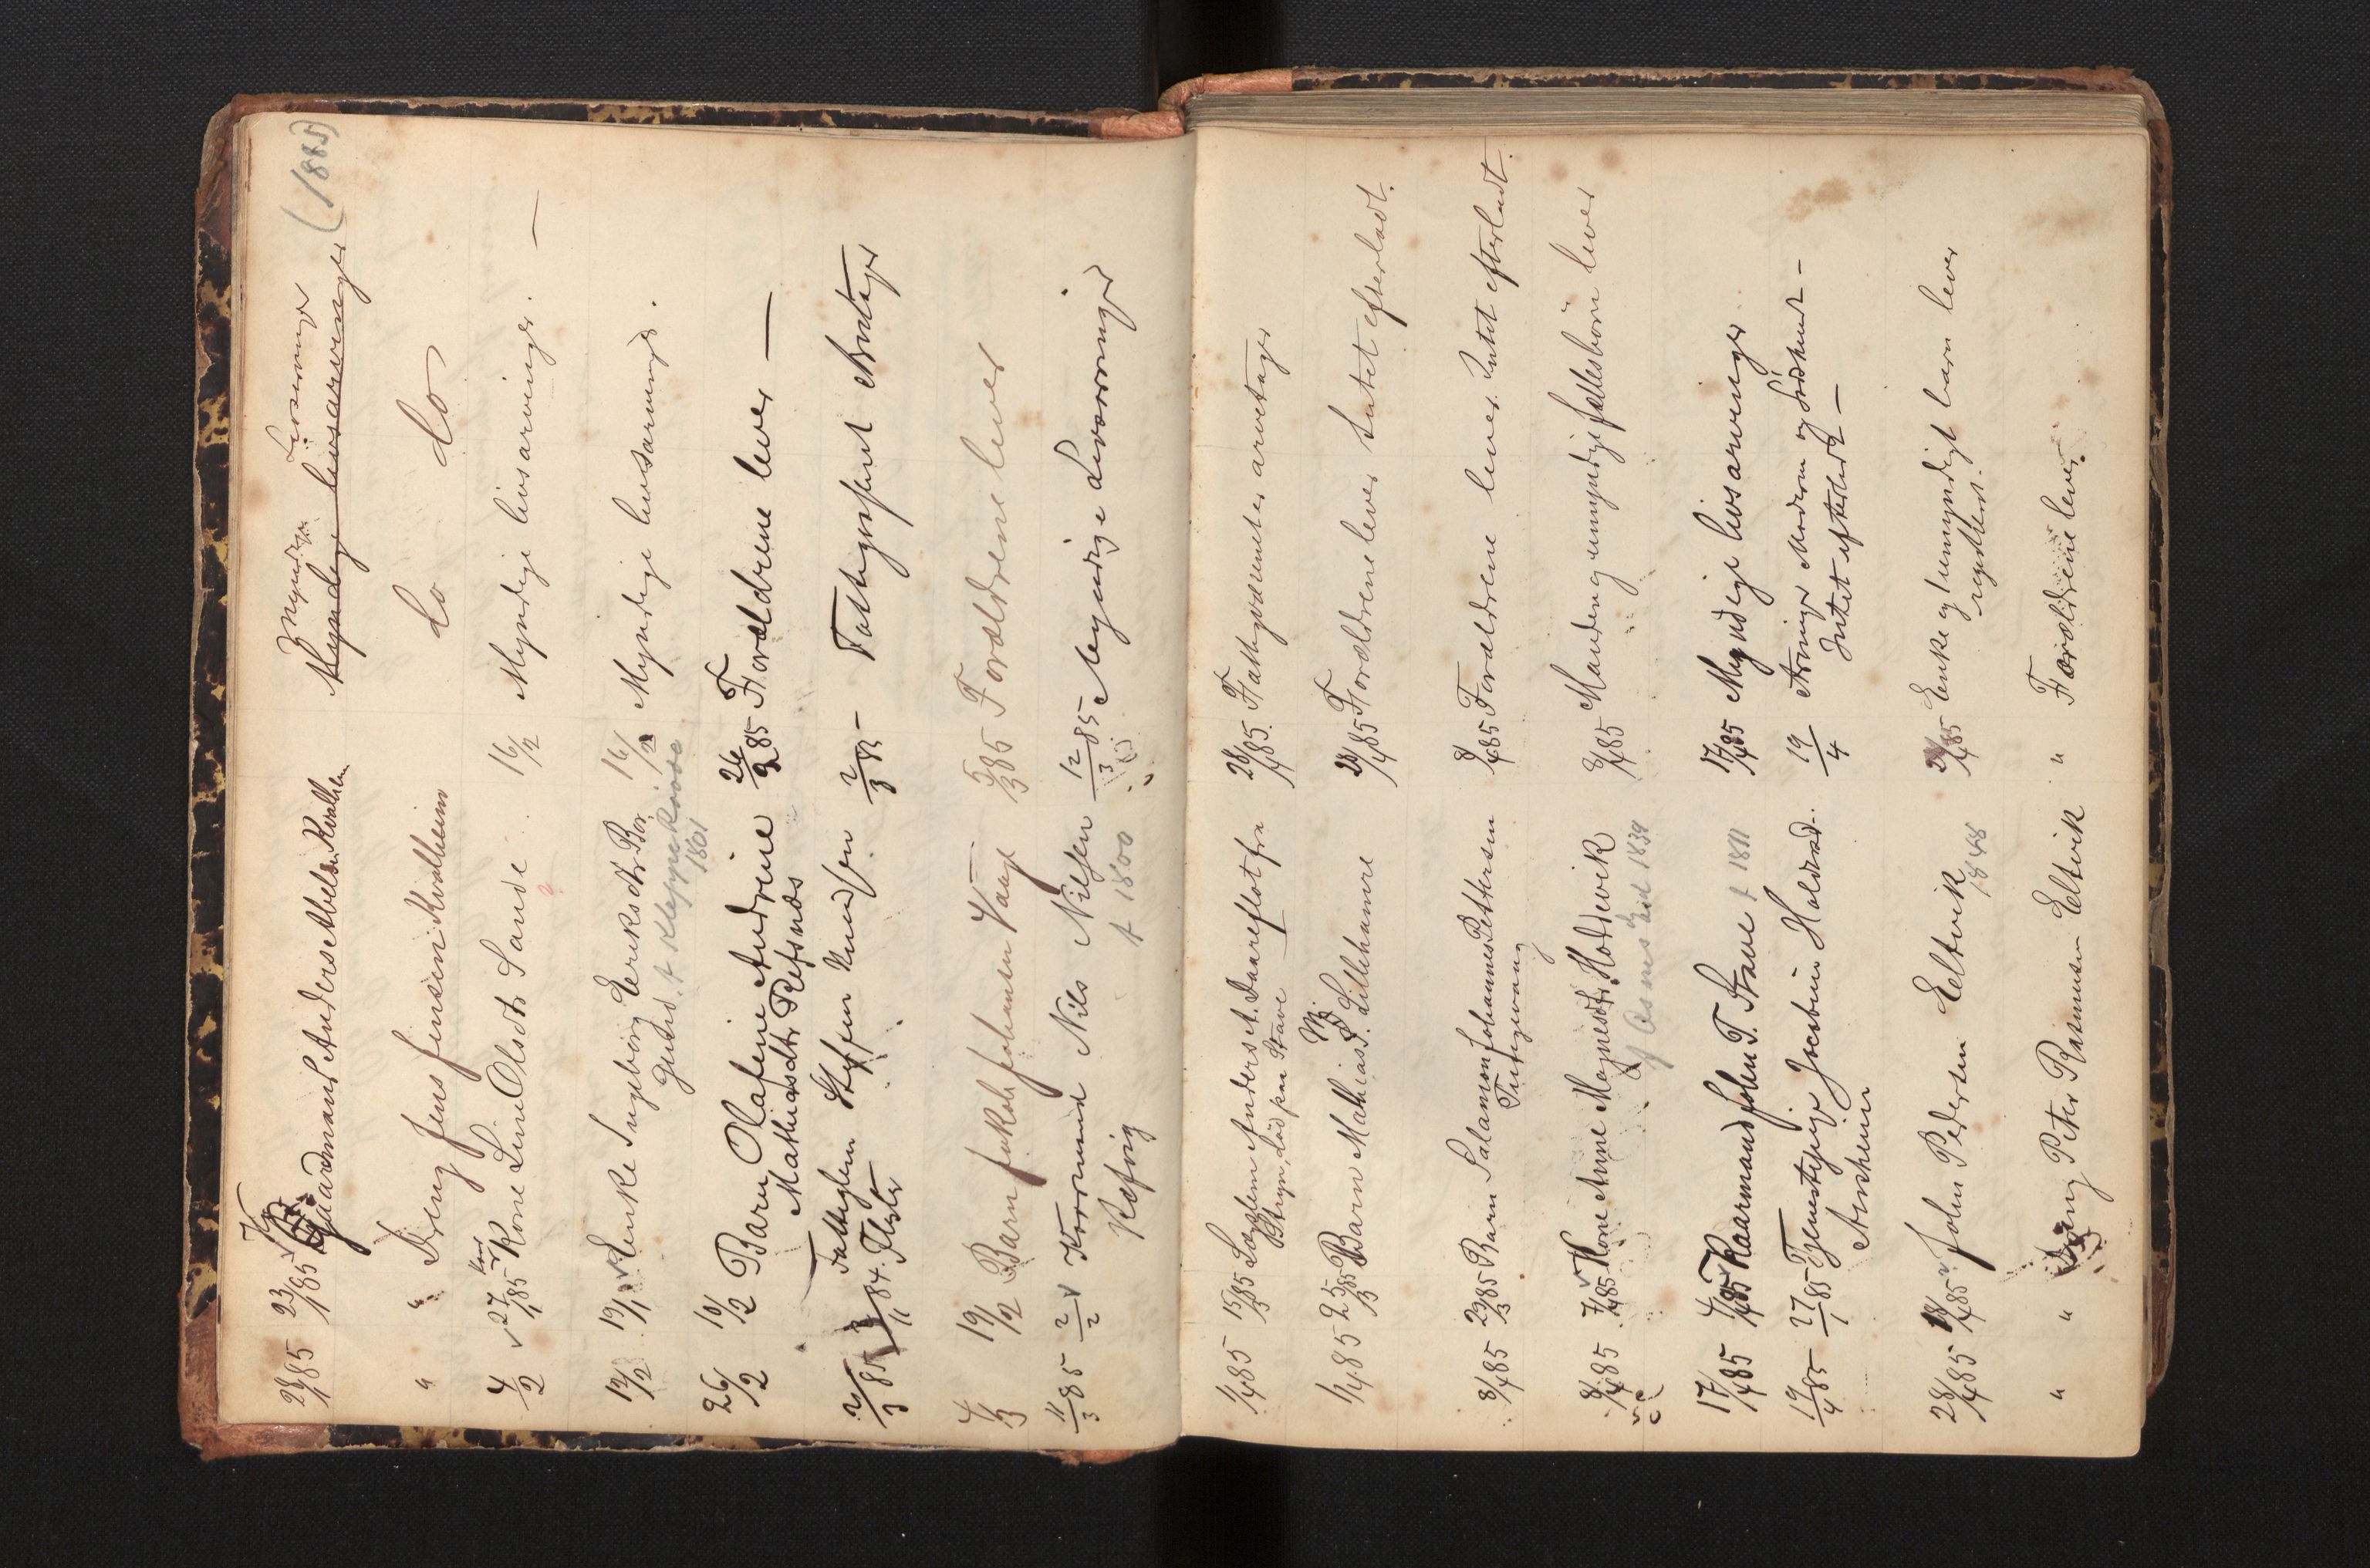 (1885)
28/1 85 23/1 85 Gaardmand Anders Abelsen Kvalheim Myndige Livsarvinger
Myndige livsarvinger
" Dreng Jens Jensen Kvalheim do do
4/2 27/1 85 Kone Line Olsdtr Sande 16/2 Myndige livsarvinger. —
12/2 19/1 Enke Ingeborg Eeriksdtr Bor 16/2 Myndige livsarvinger.
1801
26/2 10/2 Barn Olafine Andrine 26/2 85 Forældrene lever —
Mathiasdtr Refsnæs
2/3 85 Fattiglem Steffen Knudsen 2/3 85 – Fattigvæsenet Arvtager
/11 84. Flister
4/3 19/2 Barn Jakob Johansen Vaage 5/3 85 Forældrene lever
11/3 85 2/2 Kormand Nils Nilsen 12/3 85 Myndige Livsarvinger
Refvig f 1800
1/4 85 15/3 85 Lægdlem Anders A. Daareflot fra 28/4 85. Fattigvæsenet er arvetager
Stryn, død paa Stave
1/4 85 25/3 85 Barn Mathias M. Lillehamre 28/4 85 Forældrene lever Intet efterladt.
8/4 85 29/3 85 Barn Salamon Johannes Pettersen 8/4 85 Forældrene lever. Intet efterladt.
Tungevaag
8/4 85 7/4 85 Kone Anne Magnesdtr. Hoddevik 8/4 85 Manden og umyndige fællesbørn lever
1839
17/4 85 4/4 85 Kaarmand John T. Stave f 1811 17/4 85 Myndige livsarvinger
19/4 85 27/1 85 Tjenestepige Josefine Holdvad. 19/4 Arvinger Moderen og Södskend –
Aarsheim Intet efterladt –
28/4 85 18/4 85 John Pedersen Eltvik 28/4 85 Enke og 1 umyndigt barn lever
1848 registrert.
" " Dreng Peter Rasmusen Eltvik " Forældrene lever.